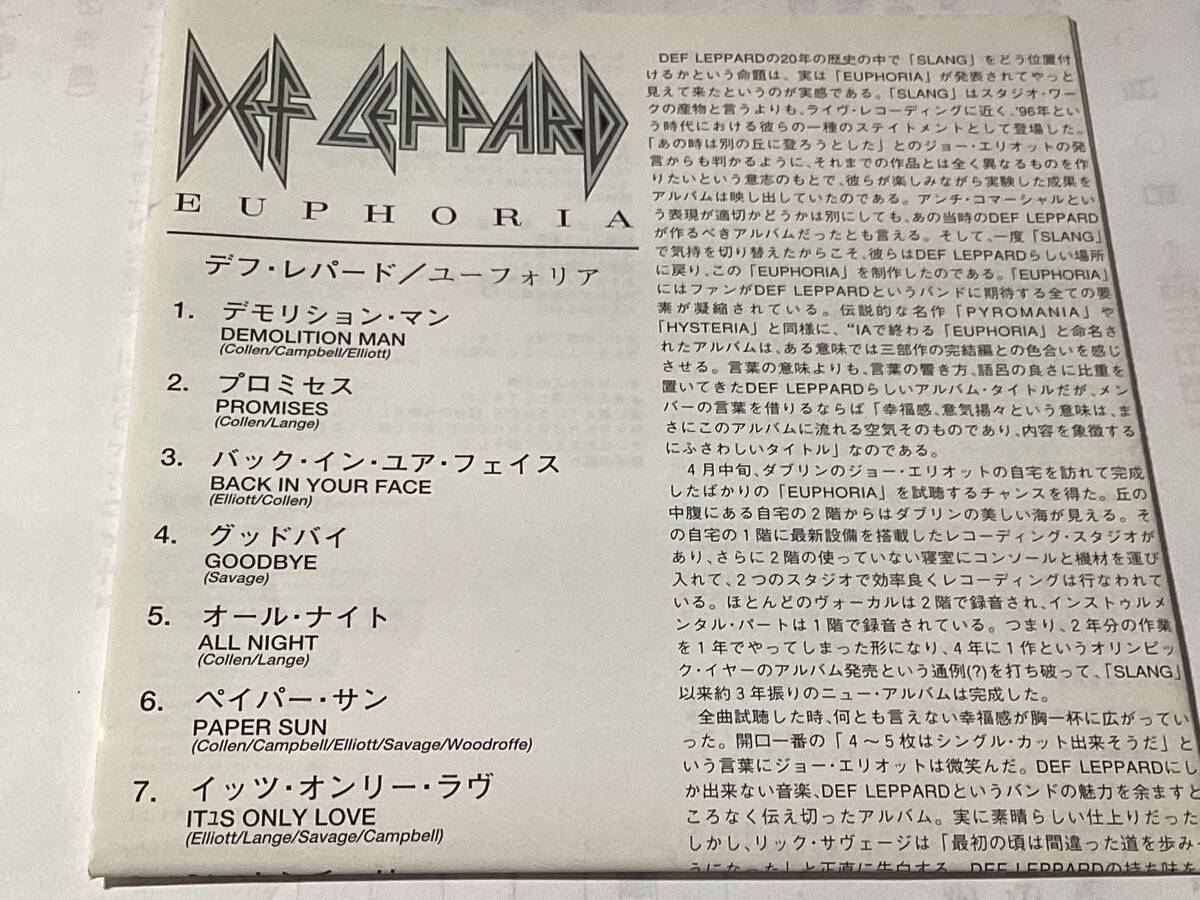 DEF LEPPARD
EUPHORIA
デフ・レパード／ユーフォリア
1. デモリション・マン
DEMOLITION MAN
(Collen/Campbell/Elliott)
2. プロミセス
PROMISES
(Collen/Lange)
3. バック・イン・ユア・フェイス
BACK IN YOUR FACE
(Elliott/Collen)
4. グッドバイ
GOODBYE
(Savage)
5. オール・ナイト
ALL NIGHT
(Collen/Lange)
6. ペイパー・サン
PAPER SUN
(Collen/Campbell/Elliott/Savage/Woodroffe)
7. イッツ・オンリー・ラヴ
ITュS ONLY LOVE
(Elliott/Lange/Savage/Campbell)
DEF LEPPARDの20年の歴史の中で「SLANG」をどう位置付
けるかという命題は、実は「EUPHORIA」が発表されてやっと
見えて来たというのが実感である。「SLANG」はスタジオ・ワー
クの産物と言うよりも、ライヴ・レコーディングに近く、'96年とい
う時代における彼らの一種のステイトメントとして登場した。
「あの時は別の丘に登ろうとした」とのジョー・エリオットの発
言からも判かるように、それまでの作品とは全く異なるものを作
りたいという意志のもとで、彼らが楽しみながら実験した成果を
アルバムは映し出していたのである。アンチ・コマーシャルとい
う表現が適切かどうかは別にしても、あの当時のDEF LEPPARD
が作るべきアルバムだったとも言える。そして、一度「SLANG」
で気持を切り替えたからこそ、彼らはDEF LEPPARDらしい場所
に戻り、この「EUPHORIA」を制作したのである。「EUPHORIA」
にはファンがDEF LEPPARDというバンドに期待する全ての要
素が凝縮されている。伝説的な名作「PYROMANIA」や
「HYSTERIA」と同様に、“IAで終わる「EUPHORIA」と命名さ
れたアルバムは、ある意味では三部作の完結編との色合いを感じ
させる。言葉の意味よりも、言葉の響き方、語呂の良さに比重を
置いてきたDEF LEPPARDらしいアルバム・タイトルだが、メン
バーの言葉を借りるならば「幸福感、意気揚々という意味は、ま
さにこのアルバムに流れる空気そのものであり、内容を象徴する
にふさわしいタイトル」なのである。
4月中旬、ダブリンのジョー・エリオットの自宅を訪れて完成
したばかりの「EUPHORIA」を試聴するチャンスを得た。丘の
中腹にある自宅の2階からはダブリンの美しい海が見える。そ
の自宅の1階に最新設備を搭載したレコーディング・スタジオが
あり、さらに2階の使っていない寝室にコンソールと機材を運び
入れて、2つのスタジオで効率良くレコーディングは行なわれて
いる。ほとんどのヴォーカルは2階で録音され、インストゥルメ
ンタル・パートは1階で録音されている。つまり、2年分の作業
を1年でやってしまった形になり、4年に1作というオリンピッ
ク・イヤーのアルバム発売という通例(?)を打ち破って、「SLANG」
以来約3年振りのニュー・アルバムは完成した。
全曲試聴した時、何とも言えない幸福感が胸一杯に広がってい
った。開口一番の「4～5枚はシングル・カット出来そうだ」と
いう言葉にジョー・エリオットは微笑んだ。DEF LEPPARDにし
か出来ない音楽、DEF LEPPARDというバンドの魅力を余すと
ころなく伝え切ったアルバム。実に素晴らしい仕上りだった
しかし、リック・サヴェージは「最初の頃は間違った道を歩み
うになった」と正直に告白する。DEF LEPPARDの持ち味を